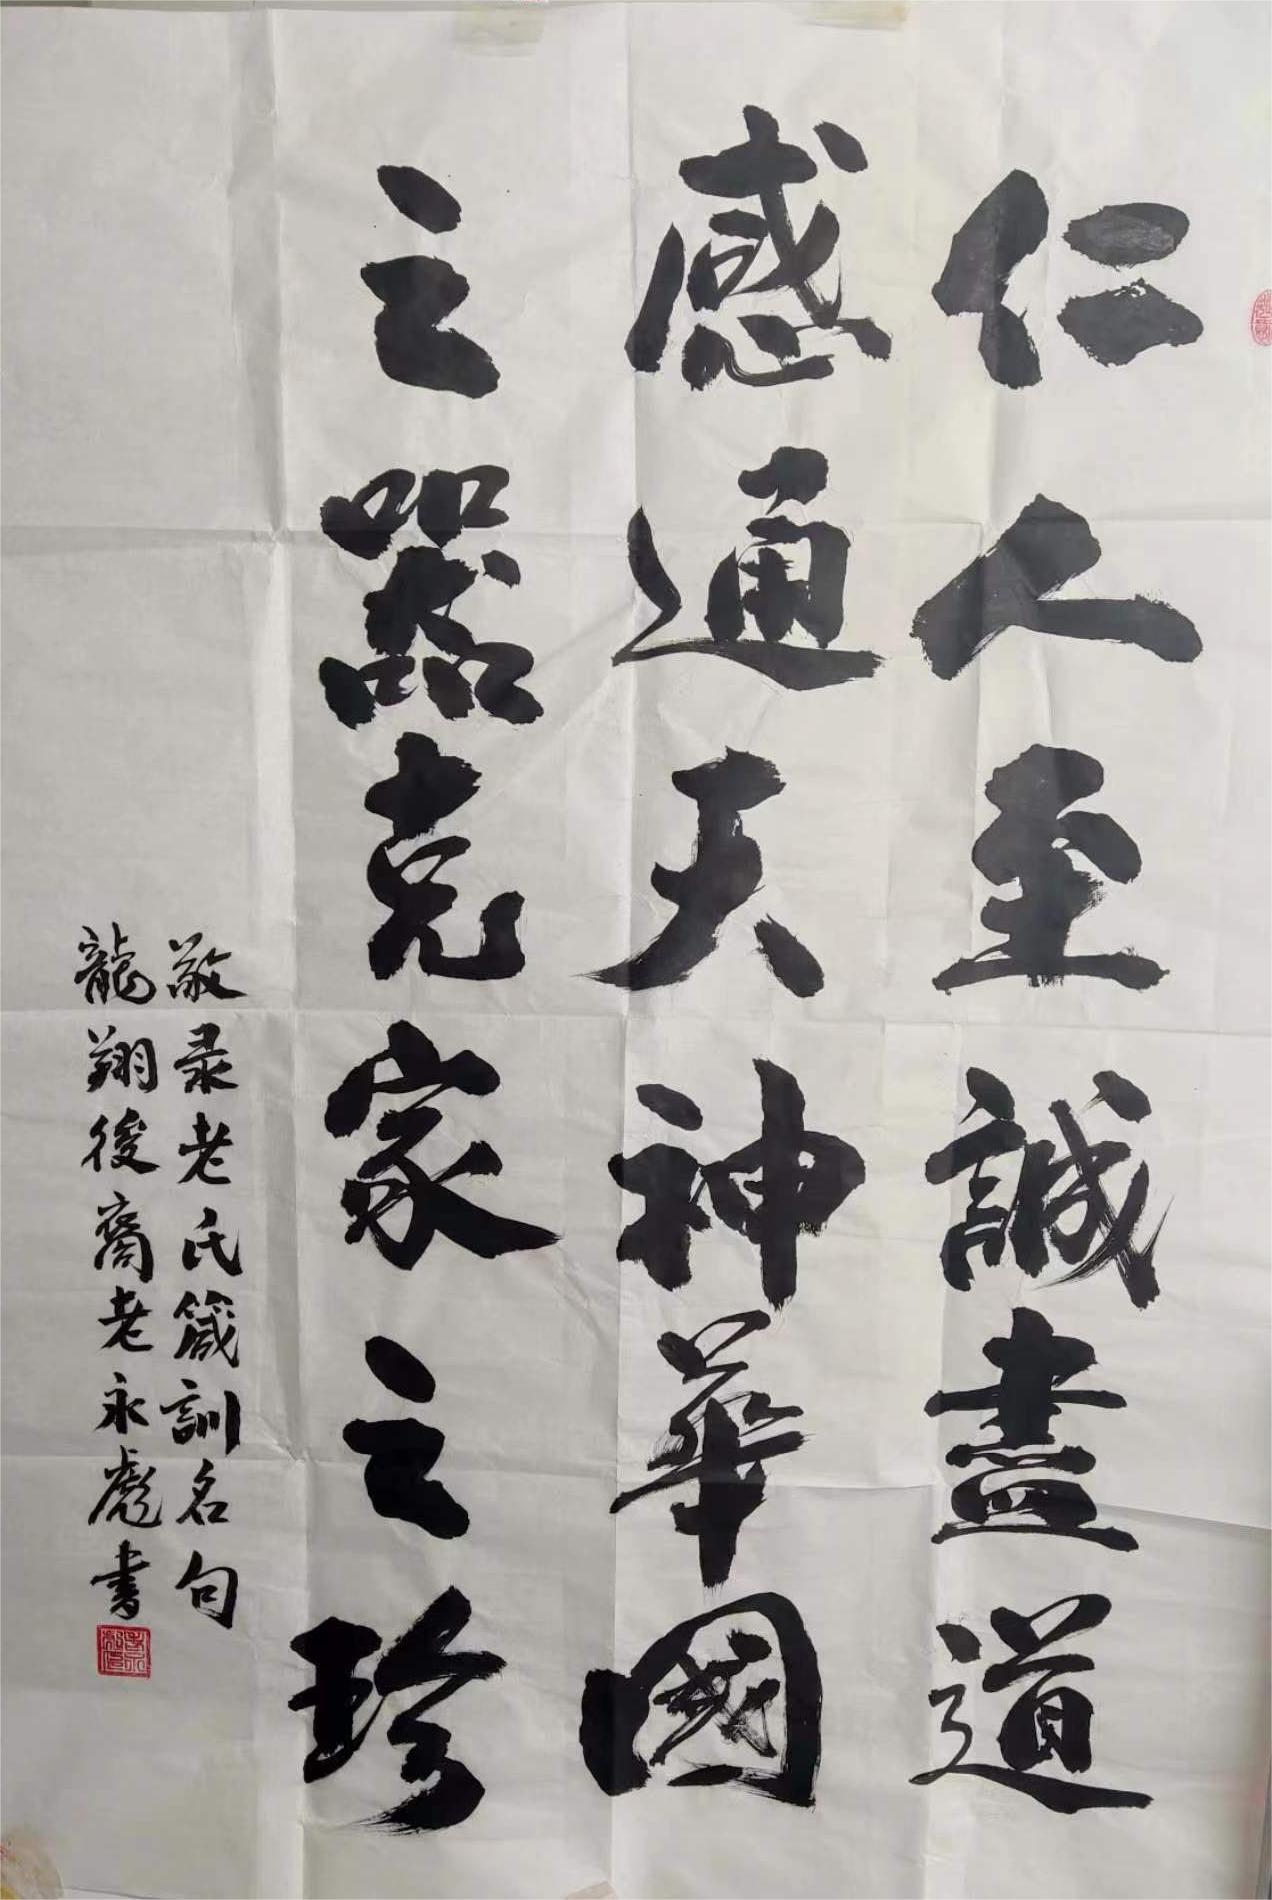 仁人至誠盡道
感通天神華國
之器克家之珍
敬录老氏箴訓名句
龍翔後裔老永彪书